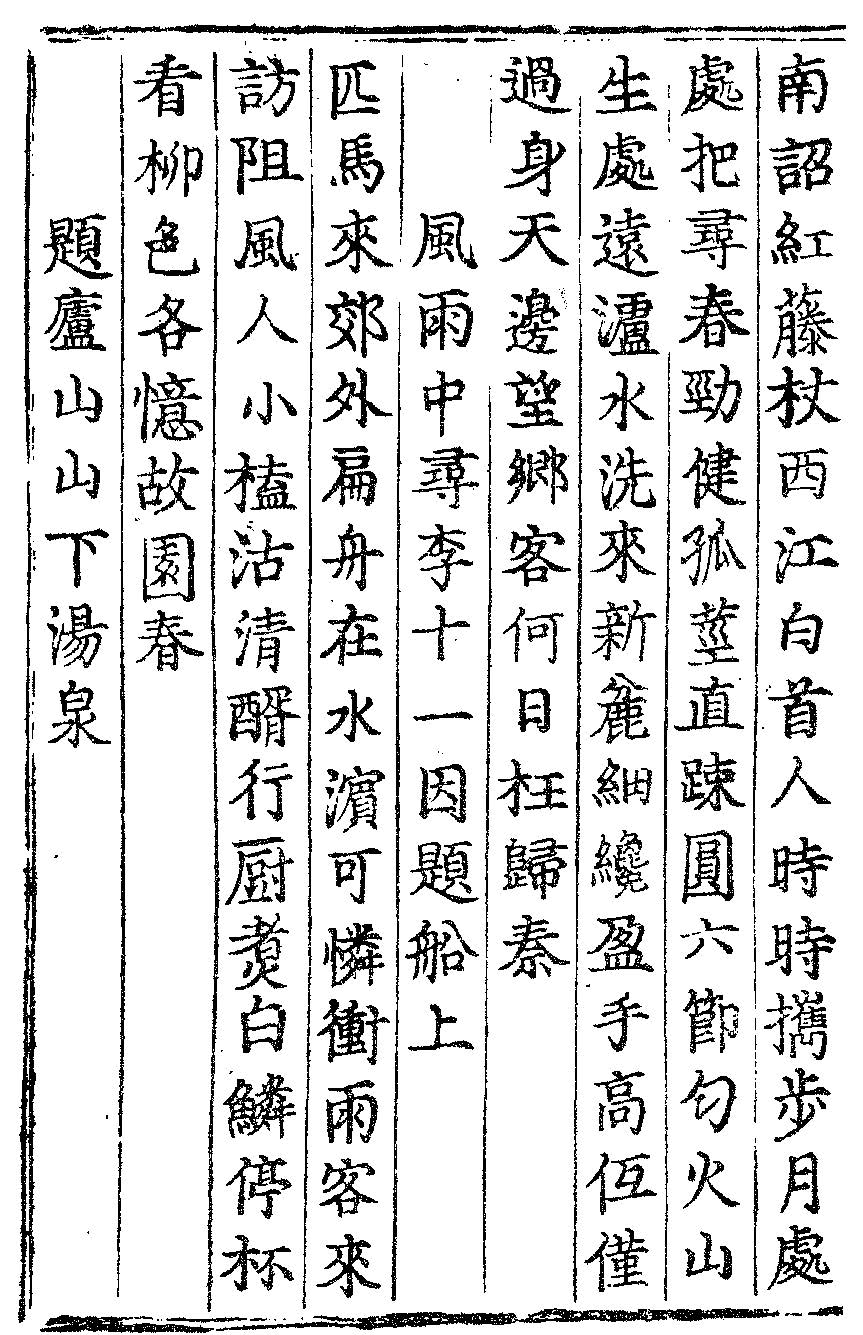 南詔紅藤杖西江白首人時時攜步月處
處把尋春勁健孤莖直踈圓六節勻火山
生處遠瀘水洗來新麄細纔盈手高低僅
過身天邊望鄉客何日枉歸秦
風雨中尋李十一因題船上
匹馬來郊外扁舟在水濵可憐衝雨客來
訪阻風人小榼沽清醑行厨煑白鱗停杯
看柳色各憶故園春
題廬山山下湯泉